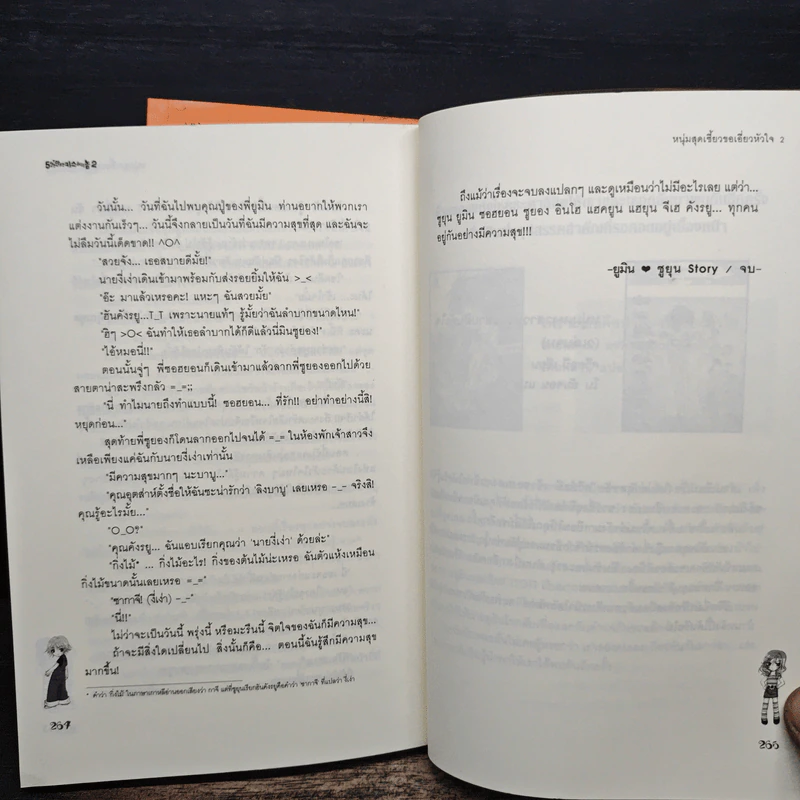 วันนั้น... วันที่ฉันไปพบคุณปู่ของพี่ยูมิน ท่านอยากให้พวกเรา
แต่งงานกันเร็วๆ... วันนี้จึงกลายเป็นวันที่ฉันมีความสุขที่สุด และฉันจะ
ไม่ลืมวันนี้เด็ดขาด!! ^O^
"สวยจัง... เธอสบายดีมั้ย!"
นายงี่เง่าเดินเข้ามาพร้อมกับส่งรอยยิ้มให้ฉัน >_<
"อ๊ะ มาแล้วเหรอคะ! แหะๆ ฉันสวยมั้ย"
"ฮันคังรยู...T_T เพราะนายแท้ๆ รู้มั้ยว่าฉันลำบากขนาดไหน!"
"ฮิๆ >O< ฉันทำให้เธอลำบากได้ก็ดีแล้วนี่มินซูยอง!"
"ไอ้หมอนี่!!"
ตอนนั้นจู่ๆ พี่ซอฮยอนก็เดินเข้ามาแล้วลากพี่ซูยองออกไปด้วย
สายตาน่าสะพรึงกลัว =_=;;
"นี่ ทำไมนายถึงทำแบบนี้! ซอฮยอน... ที่รัก!! อย่าทำอย่างนี้สิ!
หยุดก่อน..."
สุดท้ายพี่ซูยองก็โดนลากออกไปจนได้ =_= ในห้องพักเจ้าสาวจึง
เหลือเพียงแค่ฉันกับนายงี่เง่าเท่านั้น
"มีความสุขมากๆ นะบาบู..."
"คุณอุตส่าห์ตั้งชื่อให้ฉันซะน่ารักว่า 'ลิงบาบู' เลยเหรอ -_- จริงสิ!
คุณรู้อะไรมั้ย..."
"O_O?"
"คุณคังรยู... ฉันแอบเรียกคุณว่า 'นายงี่เง่า' ด้วยล่ะ"
"กิ่งไม้* ... กิ่งไม้อะไร! กิ่งของต้นไม้น่ะเหรอ ฉันตัวแห้งเหมือน
กิ่งไม้ขนาดนั้นเลยเหรอ =_="
"ซากาจี! (งี่เง่า) -_-"
"นี่!!"
ไม่ว่าจะเป็นวันนี้ พรุ่งนี้ หรือมะรืนนี้ จิตใจของฉันก็มีความสุข...
ถ้าจะมีสิ่งใดเปลี่ยนไป สิ่งนั้นก็คือ... ตอนนี้ฉันรู้สึกมีความสุข
มากขึ้น!
* คำว่า กิ่งไม้ ในภาษาเกาหลีอ่านออกเสียงว่า กาจี แต่ที่ซูยุนเรียกฮันคังรยูคือคำว่า ซากาจี ที่แปลว่า งี่เง่า
264
หนุ่มสุดเซี้ยวขอเอี่ยวหัวใจ 2
ถึงแม้ว่าเรื่องจะจบลงแปลกๆ และดูเหมือนว่าไม่มีอะไรเลย แต่ว่า...
ซูยุน ยูมิน ซอฮยอน ซูยอง อินโฮ แฮคยูน แฮยุน จีเฮ คังรยู... ทุกคน
อยู่กันอย่างมีความสุข!!!
-ยูมิน ❤ ซูยุน Story / จบ-
265